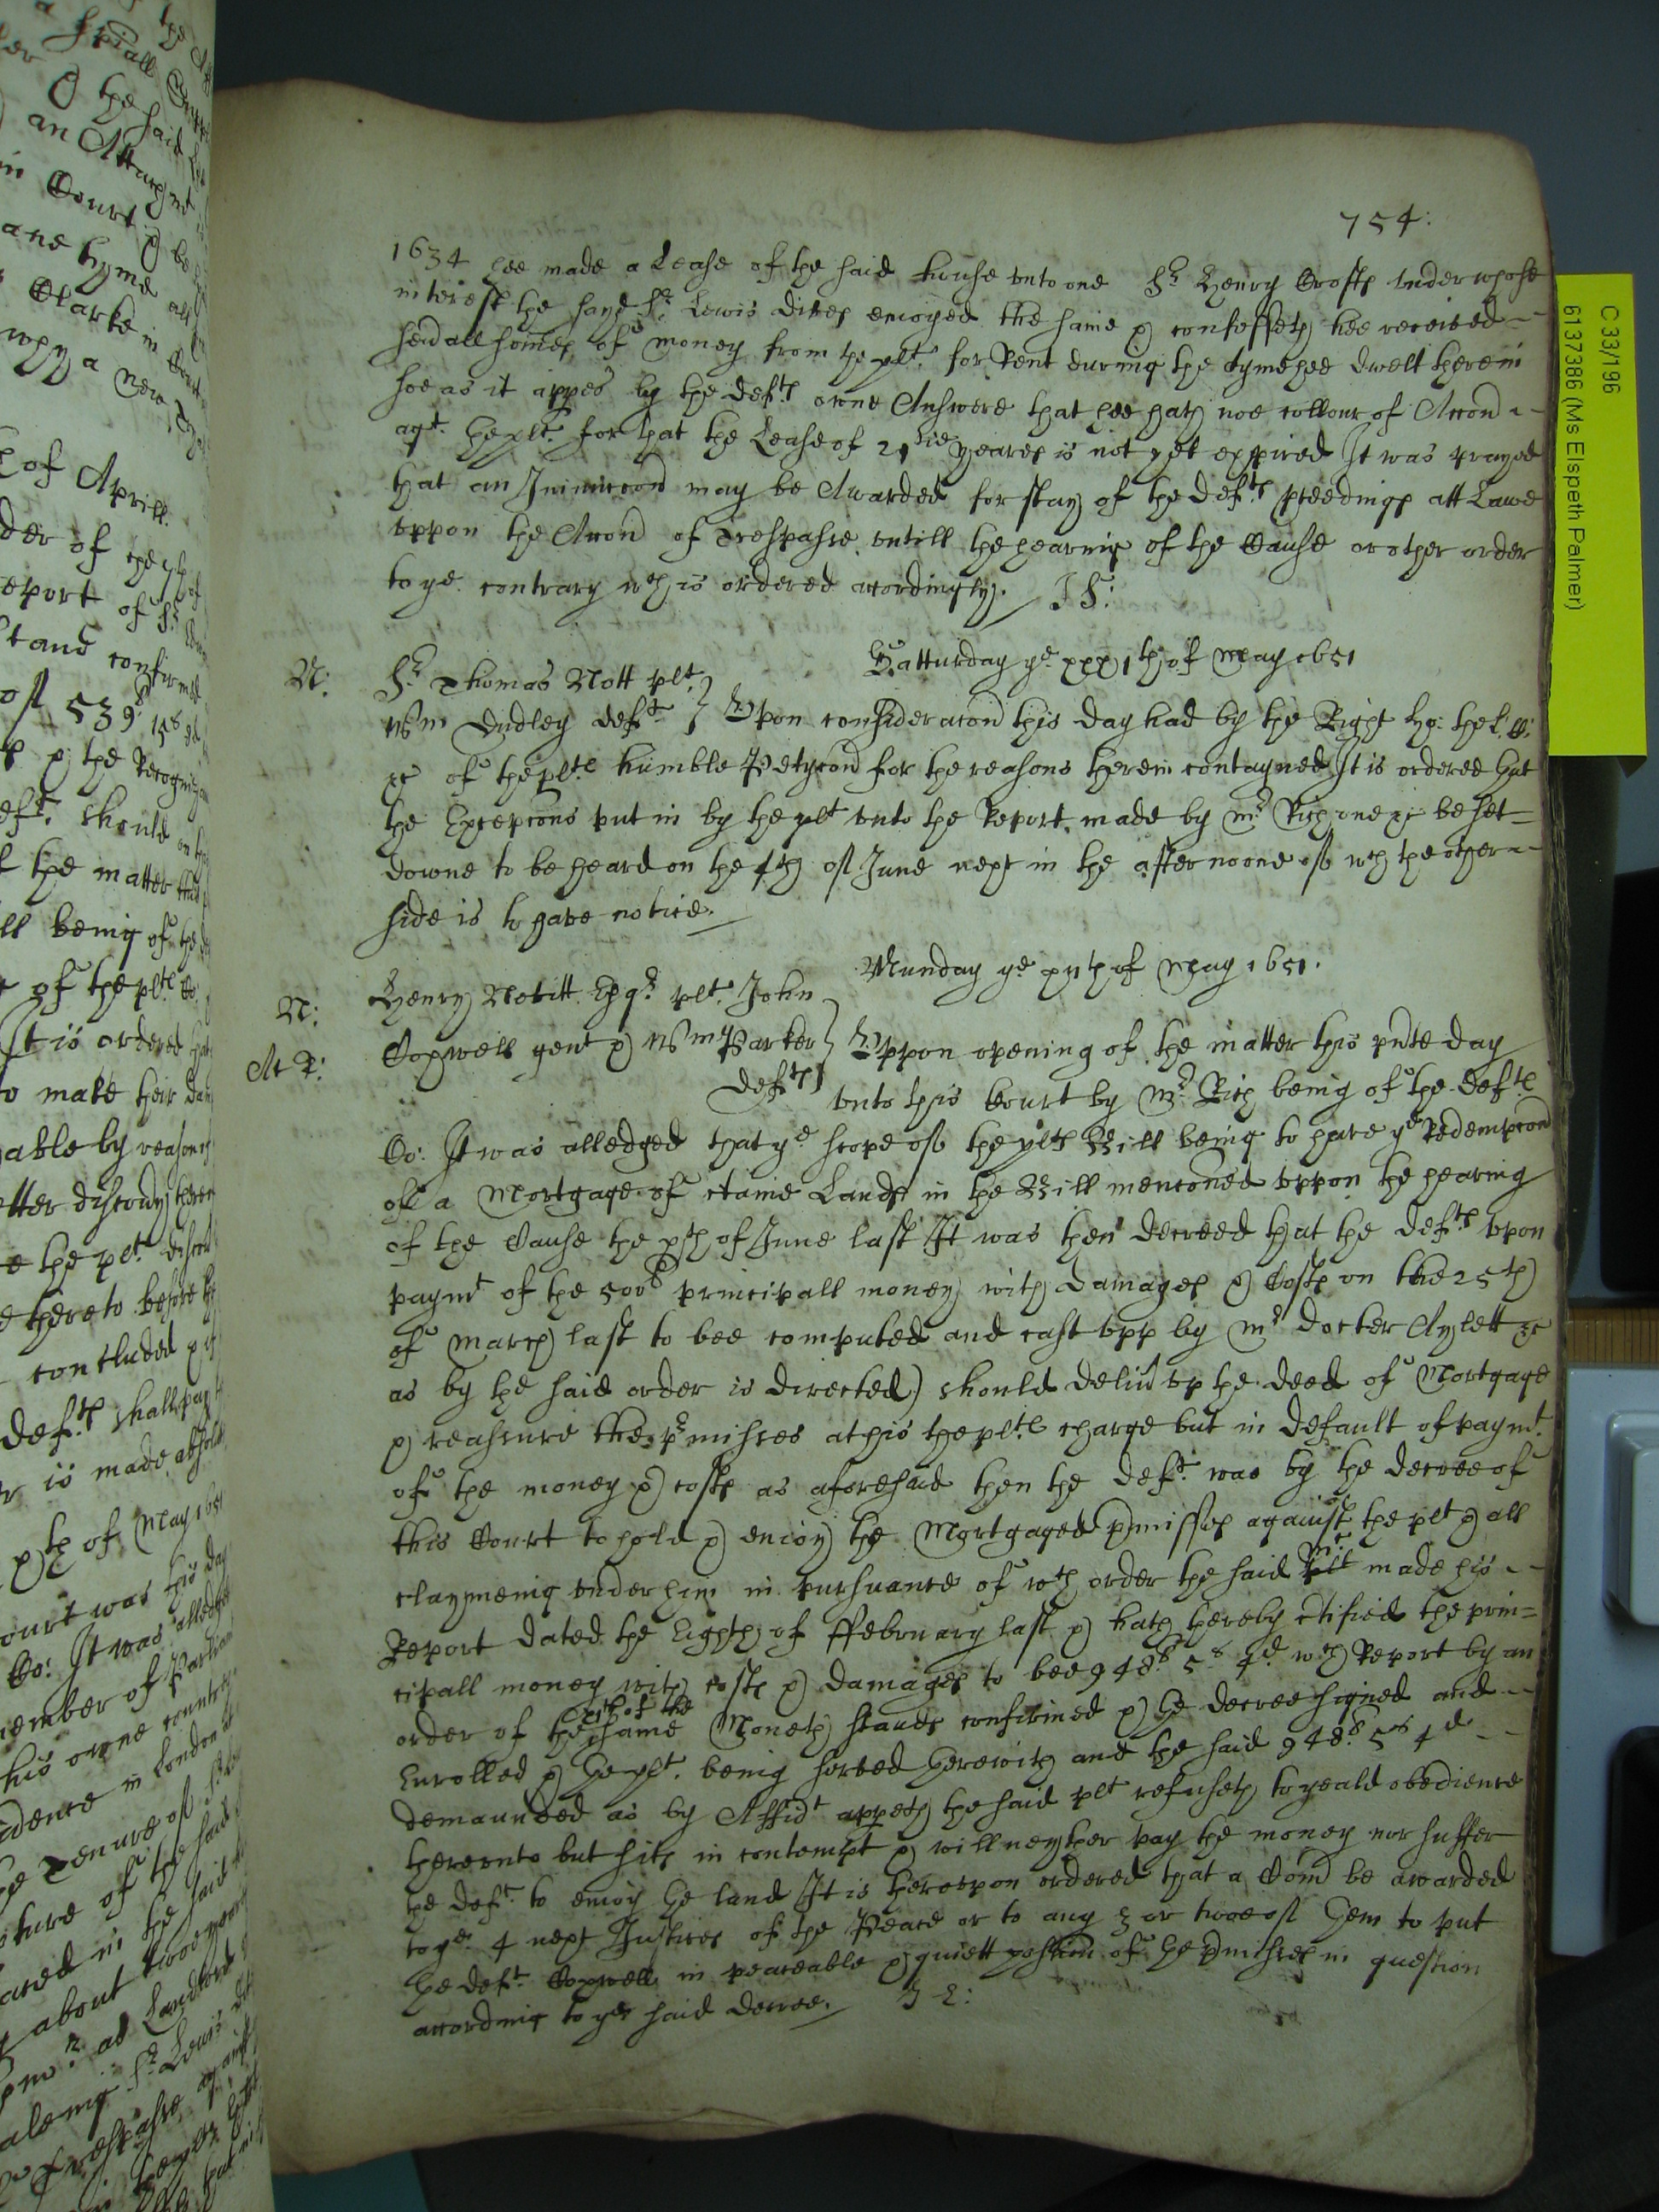 754:
1634 hee made a Lease of the said house vnto one Sr Henry Crofts vnder whose
interest the sayd Sr Lewis Dives enioyed the same & confesseth hee received
seuerall somes of money from the plt for Rent during the tyme hee dwelt therein
soe as it appes by the defts owne Answere that hee hath noe collour of Accon
agt the plt for that the Lease of 21tie yeares is not yet expired It was prayed
that an Iniunccon may be Awarded for stay of the defts pceedings att Lawe
vppon the Accon of Trespasse vntill the hearing of the Cause or other order
to ye contrary wch is ordered accordingly. J S:
Satturday ye xxxith of May 1651
N: Sr Thomas Nott plt
Wm Dudley deft Vpon consideracon this day had by the Right ho: the L: C:
&c of the plts humble Petycon for the reasons therein contayned It is ordered that
the Excepcons put in by the plt vnto the Report made by mr Rich one &c be set
downe to be heard on the 4th of June next in the afternoone of wch the other
side is to have notice.
Munday ye xiith of May 1651.
N: Henry Nevill Esqr plt John
At R: Coxwell gent & Wm Parker
defts
Vppon opening of the matter this pnte day
vnto this Court by Mr Rich being of the defts
Co: It was alledged that ye scope of the plts Bill being to have ye Redempcon
of a Mortgage of ctaine Lands in the Bill menconed vppon the hearing
of the Cause the xth of June last It was then decreed that the defts vpon
paymt of the 500l principall money with damages & Costs on the 25th
of March last to bee computed and cast vpp by mr docter Aylett &c
as by the said order is directed) should deliu vp the deed of Mortgage
& reassure the pmisses at his the plts charge but in default of paymt
of the money & costs as aforesaid then the deft was by the decree of
this Court to hold & enioy the Mortgaged pmisses against the plt & all
claymeing vnder him in pursuance of wch order the said Mr made his
Report dated the Eighth of ffebruary last & hath thereby ctified the prin=
cipall money with costs & damages to bee 948l 5s 4d wch Report by an
order of the xith of the same Moneth stands confirmed & the decree signed and
Enrolled & the plt being served therewith and the said 948l 5s 4d
demaunded as by Affidt appeth the said plt refuseth to yeald obedience
therevnto but sits in contempt & will neyther pay the money nor suffer
the deft to enioy the land It is therevpon ordered that a Comn be awarded
to ye 4 next Justices of the Peace or to any 3 or twoe of them to put
the deft Coxwell in peaceable & quiett possion of the pmisses in question
according to ye said decree. J E:
C 33/196
6137386 (Ms Elspeth Palmer)